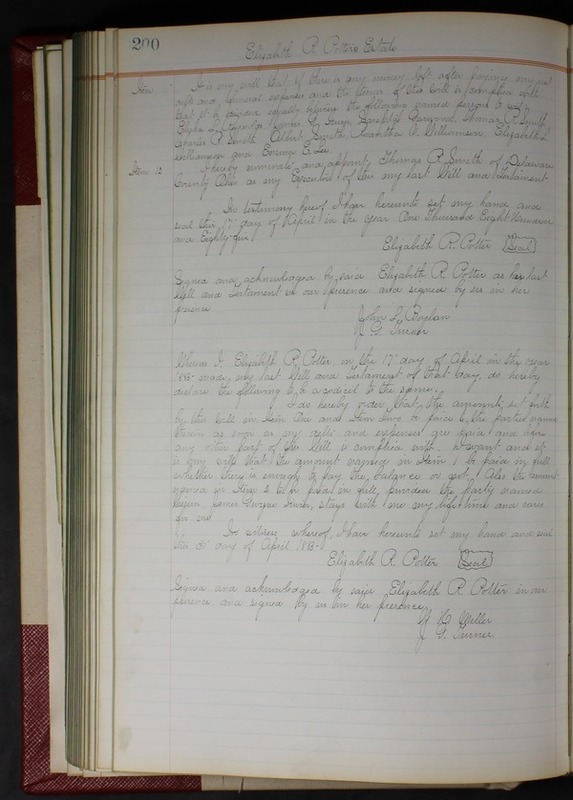 200
Elizabeth R. Potters Estate
Item It is my will that if there is any money left after paying my just
debts and funeral expenses and the items of this will is complied with
that it be divided equally between the following named persons to wit
Thomas R. Smith
Charles R. Smith Albert Smith Martha A. Williamson Elizabeth
Williamson and Emma E. Lee.
Item 12 I hereby nominate and appoint Thomas R. Smith of Delaware
County Ohio as my Executor of this my last Will and Testament
In testimony hereof I have hereunto set my hand and
seal this 17" day of April in the year One Thousand Eight Hundred
and Eighty-five
Elizabeth R. Potter (Seal)
Signed and acknowledged by said Elizabeth R. Potter as her last
Will and Testament in our presence and signed by us in her
presence
John L. Boylan
J. G. Turner
Whereas I, Elizabeth R. Potter, on the 17" day of April in the year
made my last Will and Testament of that day, do hereby
declare the following to be a codicil to the same,
I do hereby order that the amounts set forth
by this Will in Item One and Item Two be paid to the parties named
therein as soon as my debts and expenses are paid and before
any other part of the Will is complied with. I want and it
is my will that the amount named in Item 1 be paid in full
whether there is enough to pay the balance or not. Also the amount
named in Item 2 to be paid in full, provided the party named
therein stays with me my life time and cares
for me
In witness whereof, I have hereunto set my hand and seal
this day of April
Elizabeth R. Potter (Seal)
Signed and acknowledged by said Elizabeth R. Potter in our
presence and signed by us in her presence
Miller
J. G. Turner.